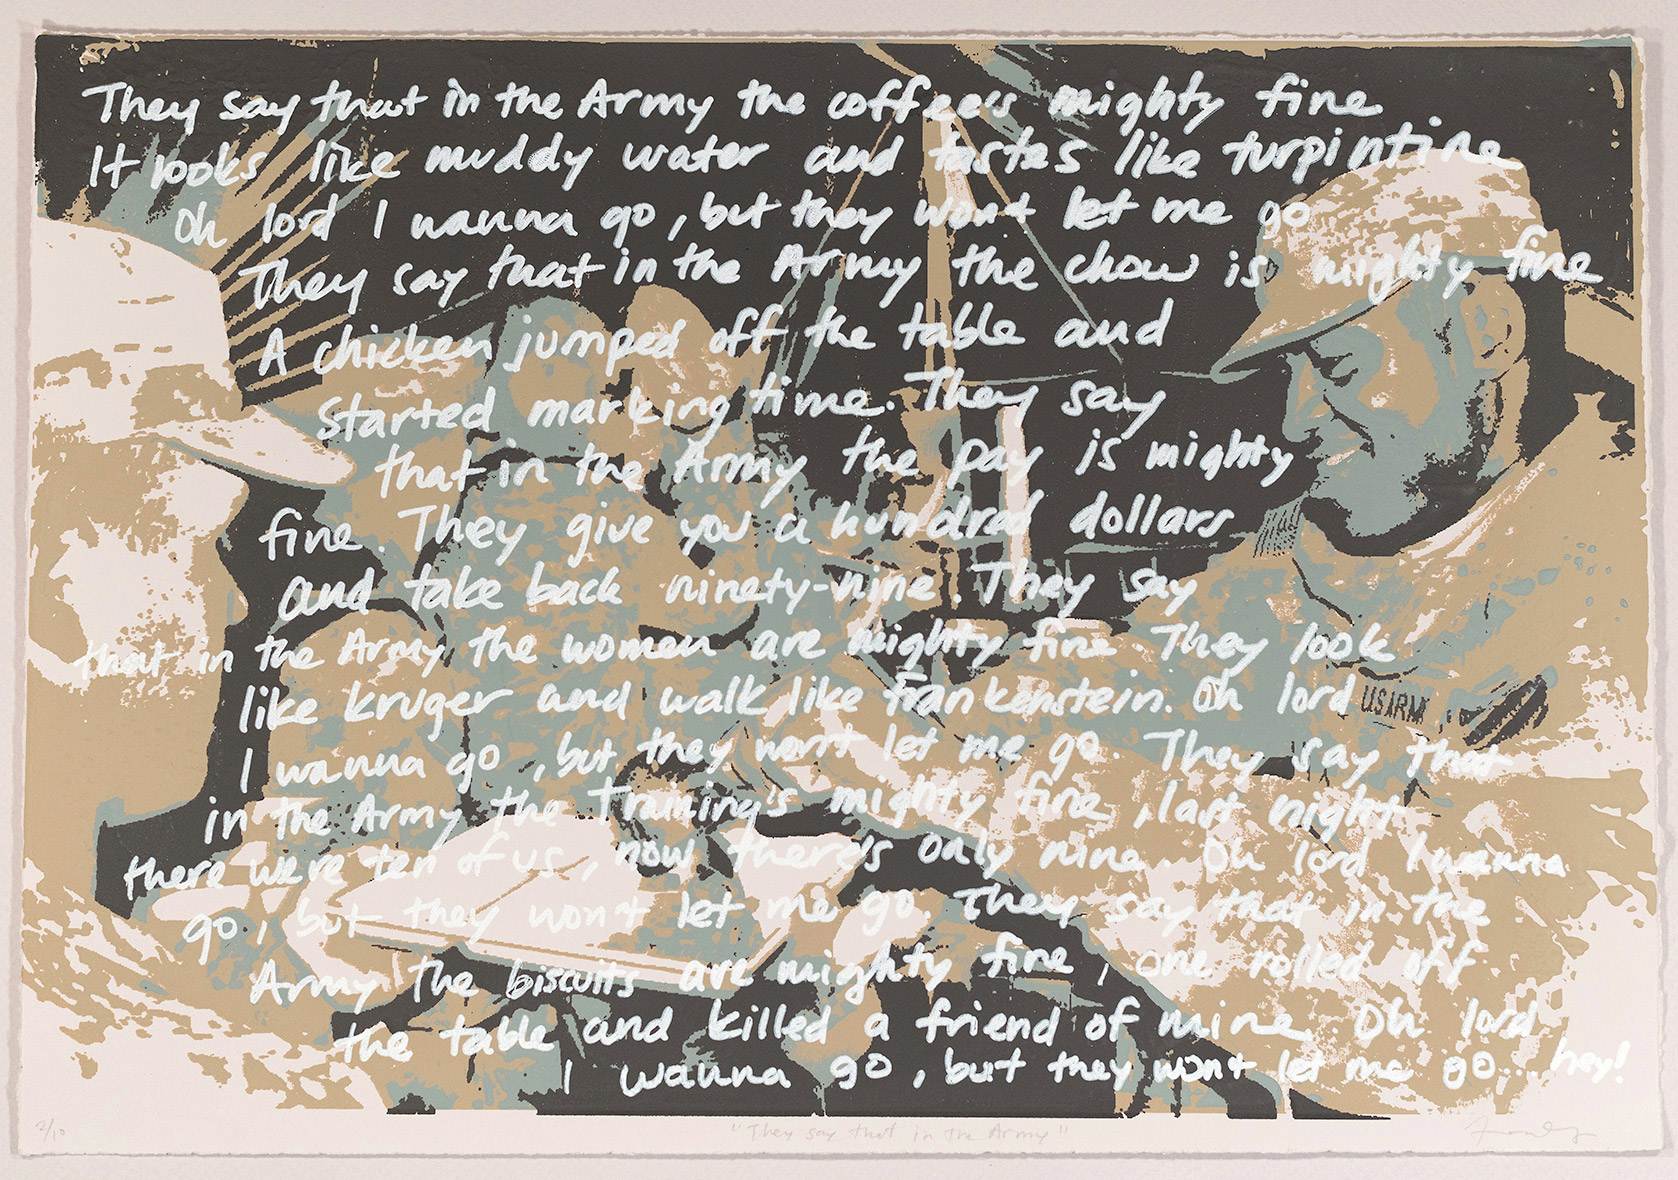 They say that in the Army the coffee's mighty fine
It looks like muddy water and tastes like turpintine
Oh lord I wanna go, but they won't let me go
They say that in the Army the chow is mighty fine
A chicken jumped off the table and
started marking time. They say
that in the Army the pay is mighty
fine. They give you a hundred dollars
and take back ninety-nine. They say
that in the Army the women are mighty fine They look
like kruger and walk like frankenstein. Oh lord
US ARM
I wanna go, but they won't let me go. They say that
in the Army the training's mighty fine, last night
there were ten of us, now there's only nine. Oh lord I wanna
go, but they won't let me go. They say that in the
Army the biscuits are mighty fine, one rolled off
the table and killed a friend of mine. Oh lord
I wanna go, but they won't let me go... hey!
2/10 "They say that in the Army"